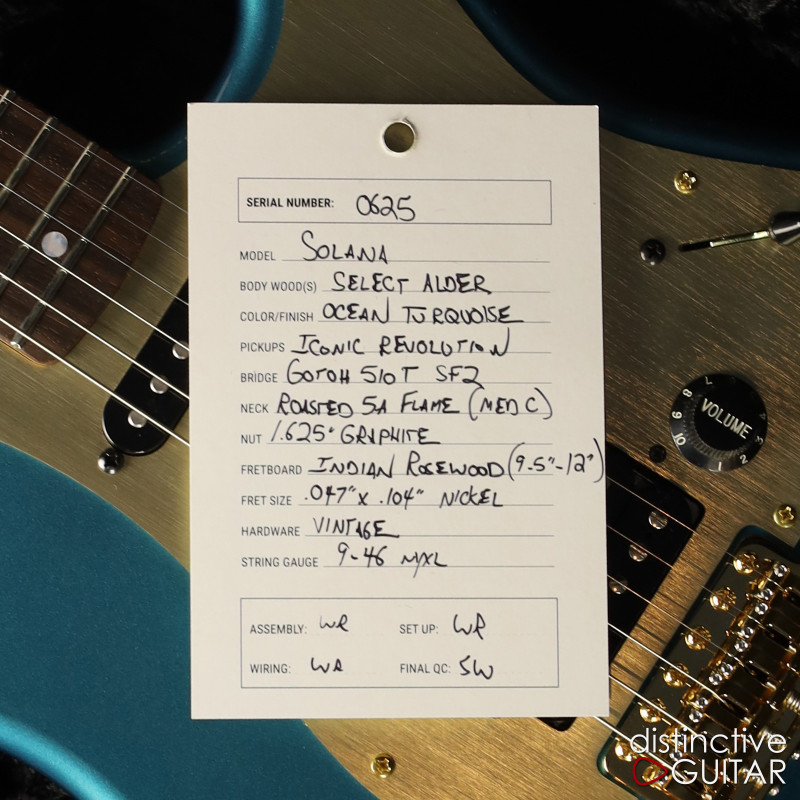 SERIAL NUMBER: 0625
MODEL SOLANA
BODY WOOD(S) SELECT ALDER
COLOR/FINISH OCEAN TURQUOISE
PICKUPS ICONIC REVOLUTION
BRIDGE GOTOH 510T SF2
NECK ROASTED 5A FLAME (MED C)
NUT 1.625" GRAPHITE
FRETBOARD INDIAN ROSEWOOD (9.5"-12")
FRET SIZE .047" X .104" NICKEL
HARDWARE VINTAGE
STRING GAUGE 9-46 NYXL
ASSEMBLY: WR SET UP: WR
WIRING: WR FINAL QC: SW
VOLUME
1 2 3 8 10
distinctive
GUITAR